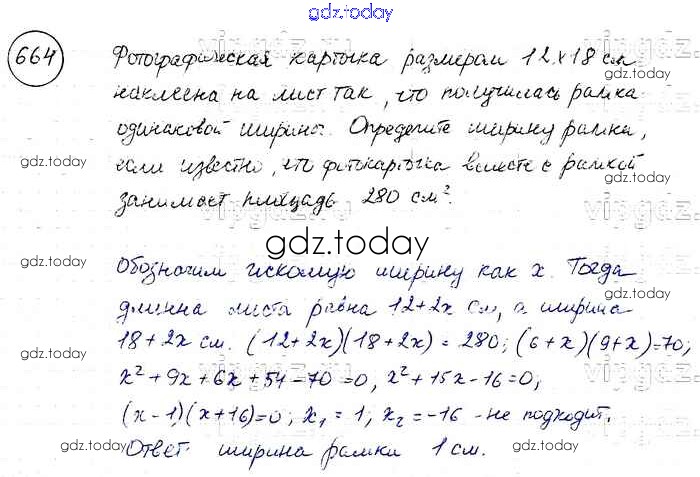 gdz.today
664
Фотографическая карточка размером 12×18 см
наклеена на лист так, что получилась рамка
gdz.today gdz.today
одинаковой ширины. Определите ширину рамки,
gdz.today gdz.today
если известно, что фотокарточка вместе с рамкой
занимает площадь 280 см².
gdz.today
Обозначим искомую ширину как x. Тогда
gdz.today gdz.today
длинна листа равна 12+2x см, а ширина
18+2x см. (12+2x)(18+2x) = 280; (6+x)(9+x)=70;
gdz.today gdz.today
x²+9x+6x+54-70=0, x²+15x-16=0;
(x-1)(x+16)=0; x₁=1, x₂=-16 - не подходит.
gdz.today gdz.today gdz.today
Ответ ширина рамки 1 см.